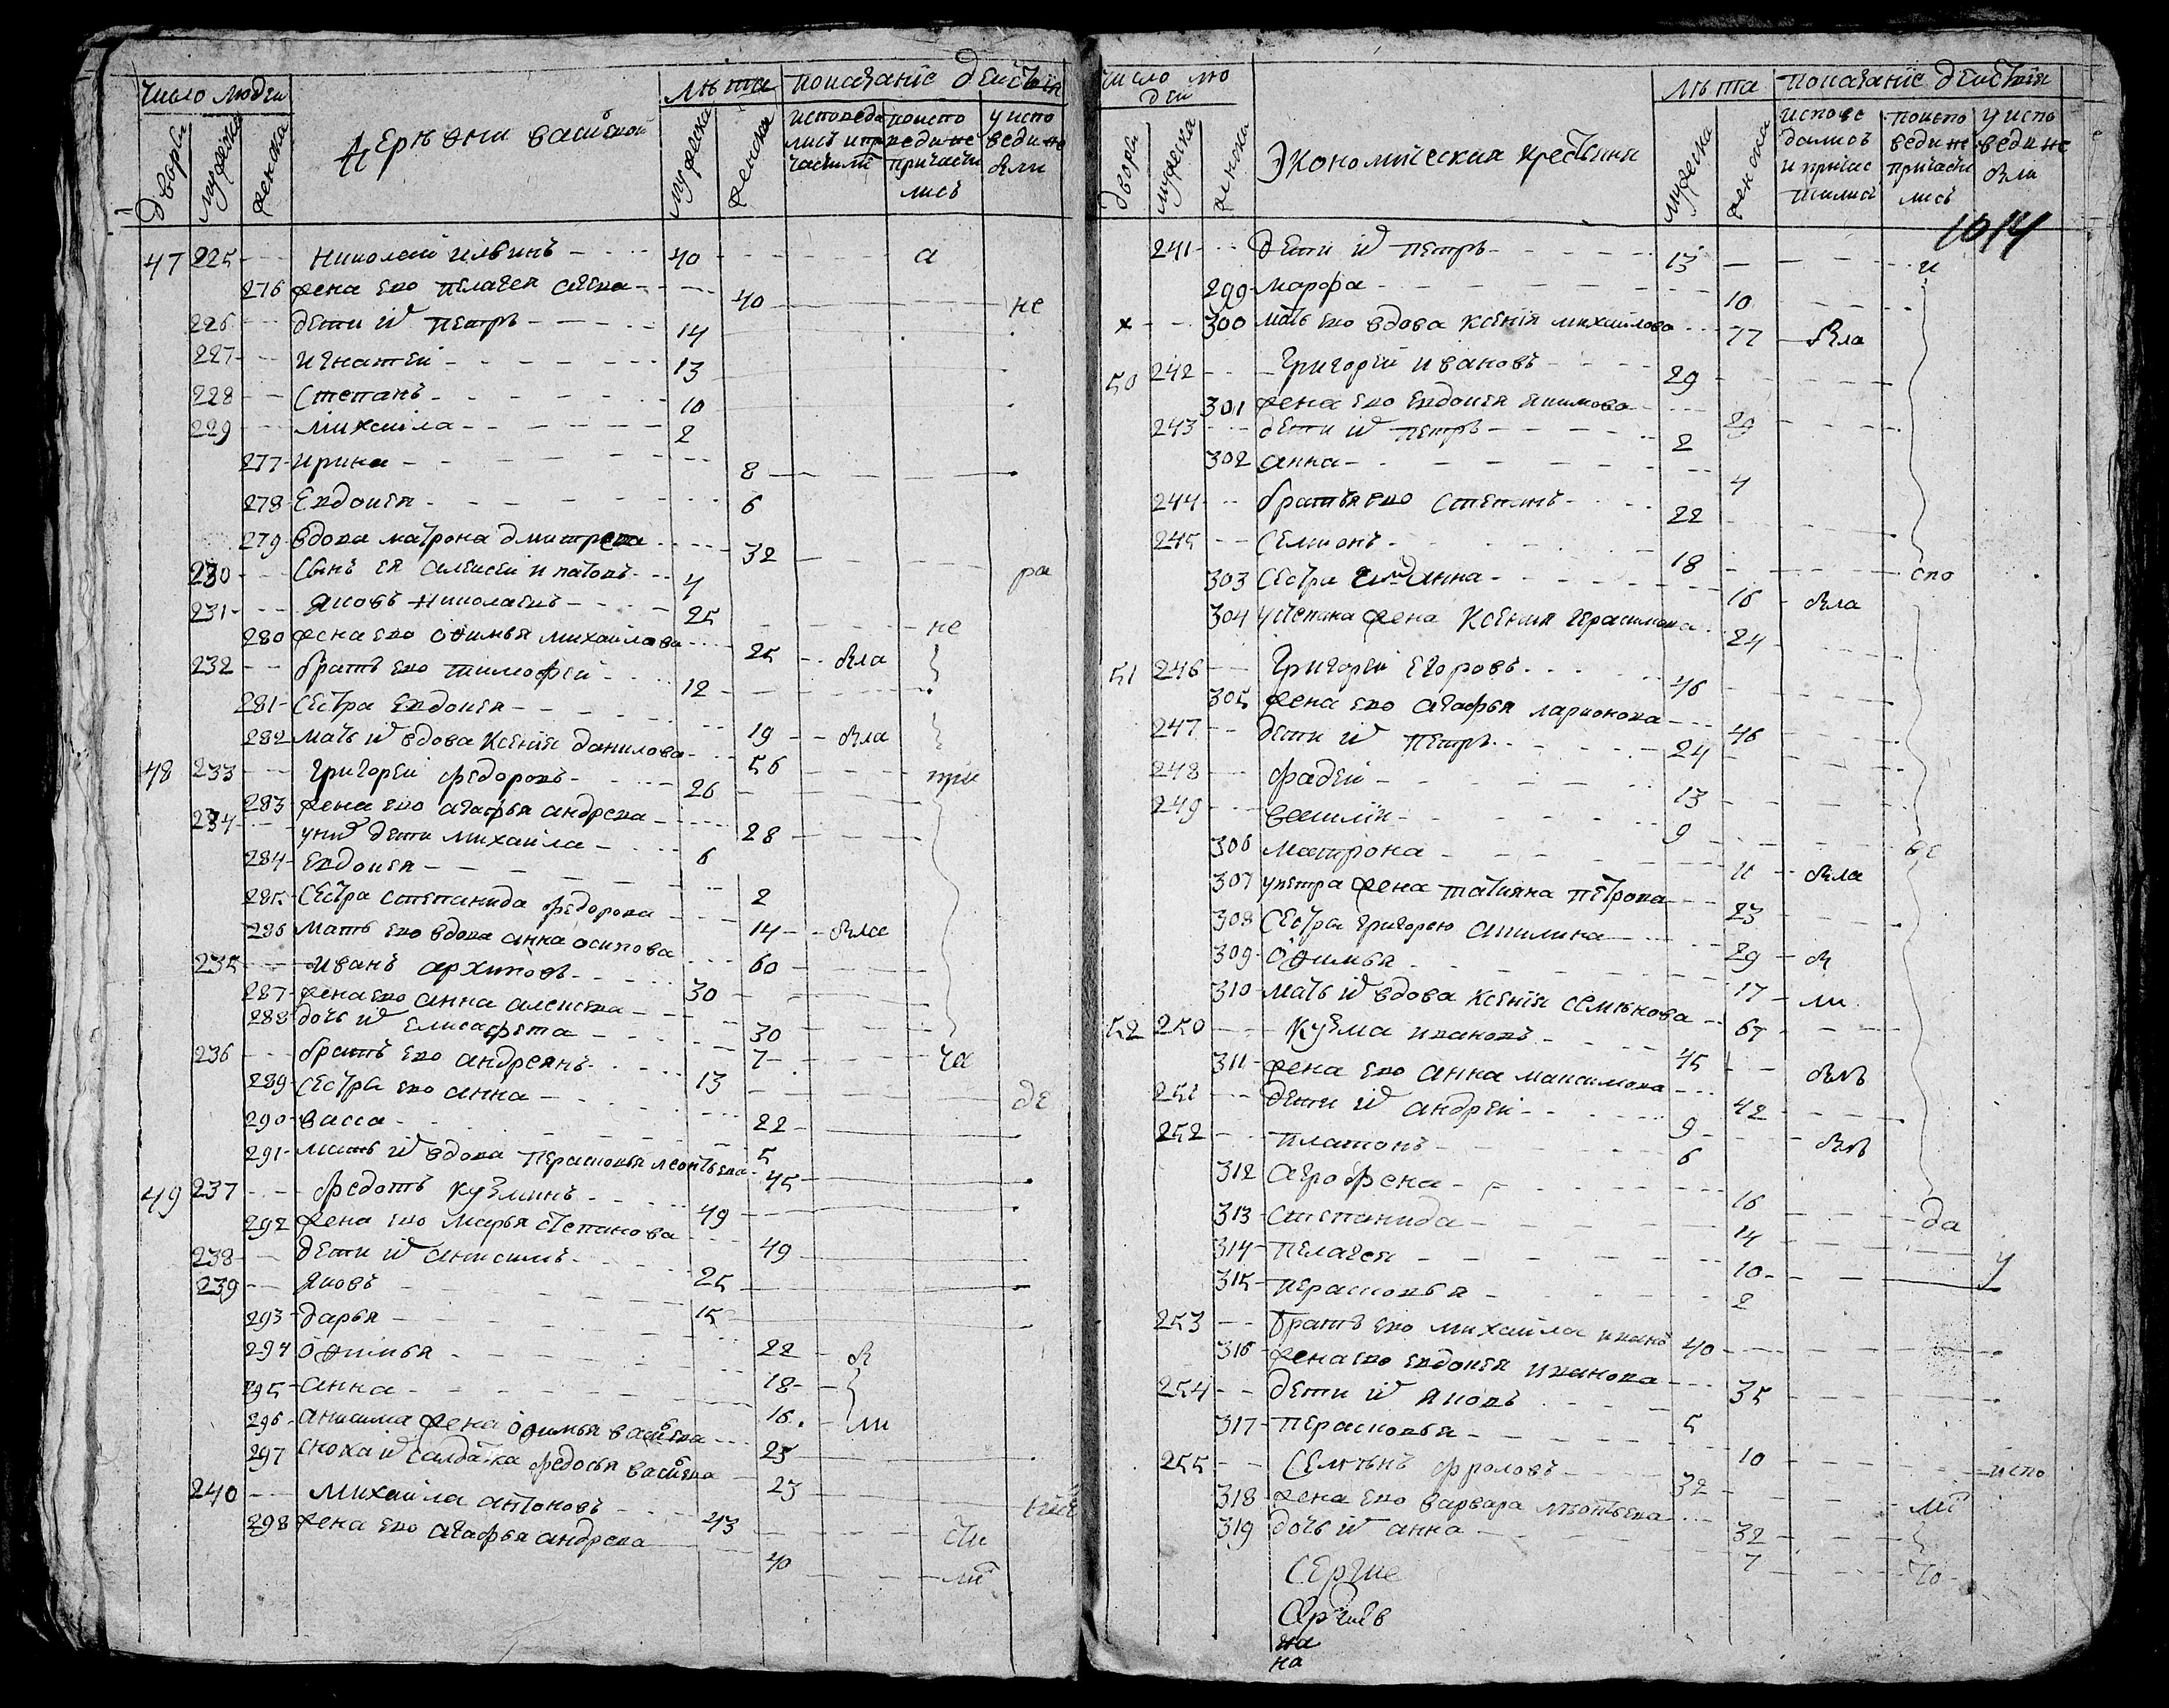 число людей
дворы
мужеска
женска
Деревни васиной
лета
мужеска
женска
показание действия
исповеда
лись и при
частили
поиспо
веди не
причасти
лись
у испо
веди не
были
47 225 Николай ильинъ 40 а
276 жена ево пелагея 40 не
226 дети их петръ 14
227 игнатей 13
228 Степанъ 10
229 михаила 2
277 ирина 8
278 Евдокея 6
279 вдова матрона дмитрева 32
230 Сынъ ея алексей 4 ра
231 яковъ николаевъ 25 не
280 жена ево офимья михаилова 25 была
232 братъ ево тимофей 12
281 Сестра евдокея 19 была
282 мать их вдова Ксения данилова 56
48 233 григорей федоровъ 26 при
283 жена ево агафья андрева 28
234 у них дети михаила 6
284 евдокея 2
285 Сестра степанида федорова 14 была
286 мать ево вдова анна осипова 60
235 иванъ архиповъ 30
287 жена ево анна алексева 30
288 дочь их елисафета 7
236 братъ ево андреянъ 13 ча
289 Сестры ево анна 22 де
290 васса 5
291 мать их вдова перасковья леонтьева 45
49 237 федотъ кузминъ 49
292 жена ево марья степанова 49
238 дети их анисимъ 25
239 яковъ 15
293 дарья 22 бы
294 офимья 18
295 анна 16 ли
296 анисима жена офимья васильева 25
297 сноха их салдатка федосья васильева 23
240 михаила антоновъ 43 сти
298 жена ево агафья андрева 40 ли
число лю
дей
дворы
мужеска
женска
Экономическия крестьяня
лета
мужеска
женска
показание действия
испове
дались
и причас
тились
поиспо
веди не
причасти
лись
у испо
веди не
были
1014
241 дети их петръ 13 и
299 марфа 10
300 мать ево вдова ксения михаилова 77 была
50 242 Григорей ивановъ 29
301 жена ево евдокея якимова 29
243 дети их петръ 2
302 анна 4
244 братья ево степанъ 22
245 Семионъ 18 спо
303 Сестра анна 16 была
304 у степана жена Ксения герасимова 24
51 246 Григорей Егоровъ 46
305 жена ево агафья ларионова 46
247 дети их петръ 24
248 фадей 13
249 василий 9 ве
306 матрона 11 была
307 у петра жена татияна петрова 23
308 Сестры григорею акилина 29 бы
309 офимья 17 ли
310 мать их вдова ксения семенова 67
52 250 Кузма ивановъ 45 былъ
311 жена ево анна максимова 42
251 дети их андрей 9 былъ
252 платонъ 6
312 агрофена 16
313 степанида 14 да
314 пелагея 10 у
315 перасковья 2
253 братъ ево михаила ивановъ 40
316 жена ево евдокея иванова 35
254 дети их яковъ 5
317 перасковья 10
255 Семионъ фроловъ 32 испо
318 жена ево варвара леонтьева 32 ли
319 дочь их анна 7 то
Сергие
на